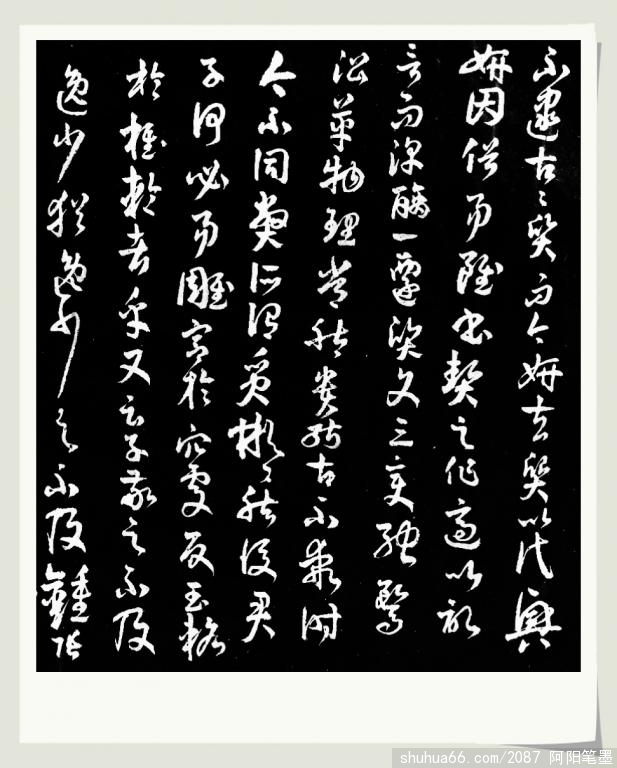 不逮古〻質而今妍夫質以代興
妍因俗易雖書契之作適以記
言而淳醨一遷質文三變馳騖
沿革物理常然貴能古不乖時
今不同弊所謂文質彬〻然後君
子何必易雕宮於穴處反玉輅
於椎輪者乎又云子敬之不及
逸少猶逸少之不及鍾張
shuhua66.com/2087 阿阳笔墨